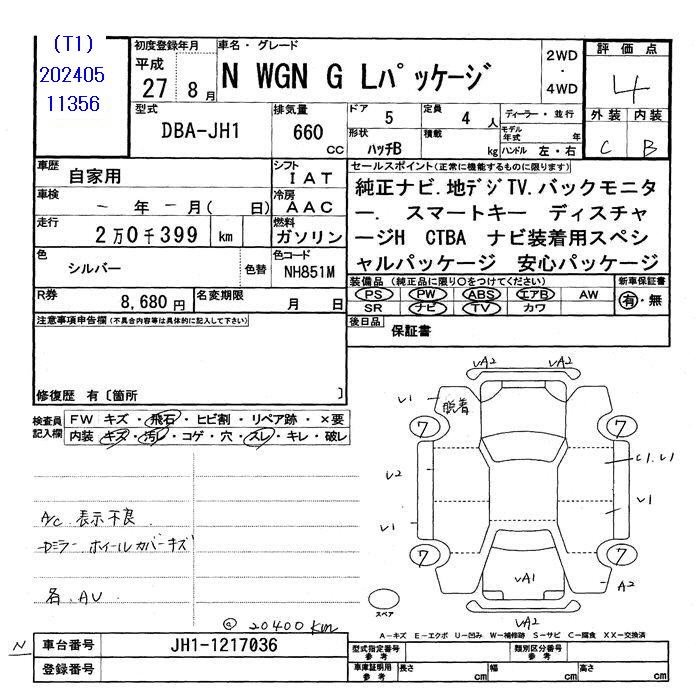 (T1)
202405
11356
初度登録年月
平成
27 8 月
車名・グレード
N WGN G Lパッケージ
2WD
・
4WD
評価点
4
外装 内装
C B
型式
DBA-JH1
排気量
660
CC
ドア 5
定員 4 人
形状 ハッチB
積載 kg
ディーラー・並行
モデル年式 年
ハンドル 左・右
車歴
自家用
シフト
IAT
車検
－ 年 － 月( 日)
冷房
AAC
走行
2万0千399 km
燃料
ガソリン
色
シルバー
色替
色コード
NH851M
R券
8,680円
名変期限
月 日
セールスポイント(正常に機能するものに限ります)
純正ナビ.地デジTV.バックモニタ
ー. スマートキー ディスチャ
ージH CTBA ナビ装着用スペシ
ャルパッケージ 安心パッケージ
装備品(純正品に限り○をつけてください)
新車保証書
PS PW ABS エアB AW
SR ナビ TV カワ
有・無
後日品
保証書
注意事項申告欄(不具合内容等は具体的に記入して下さい)
修復歴 有〔箇所 〕
検査員
記入欄
FW キズ・飛石・ヒビ割・リペア跡・×要
内装 キズ・汚レ・コゲ・穴・スレ・キレ・破レ
A/C 表示不良
ミラー ホイールカバーキズ
名. AU
@ 20400 Km
VA2 VA2
脱着
V1
7 7
V2
C1. V1
V1
V1
7 7
VA1
A2
VA2
スペア
A－キズ E－エクボ U－凹み W－補修跡 S－サビ C－腐食 XX－交換済
N
車台番号
JH1-1217036
登録番号
型式指定番号
参考
類別区分番号
参考
車庫証明用
参考
長さ cm
幅 cm
高さ cm